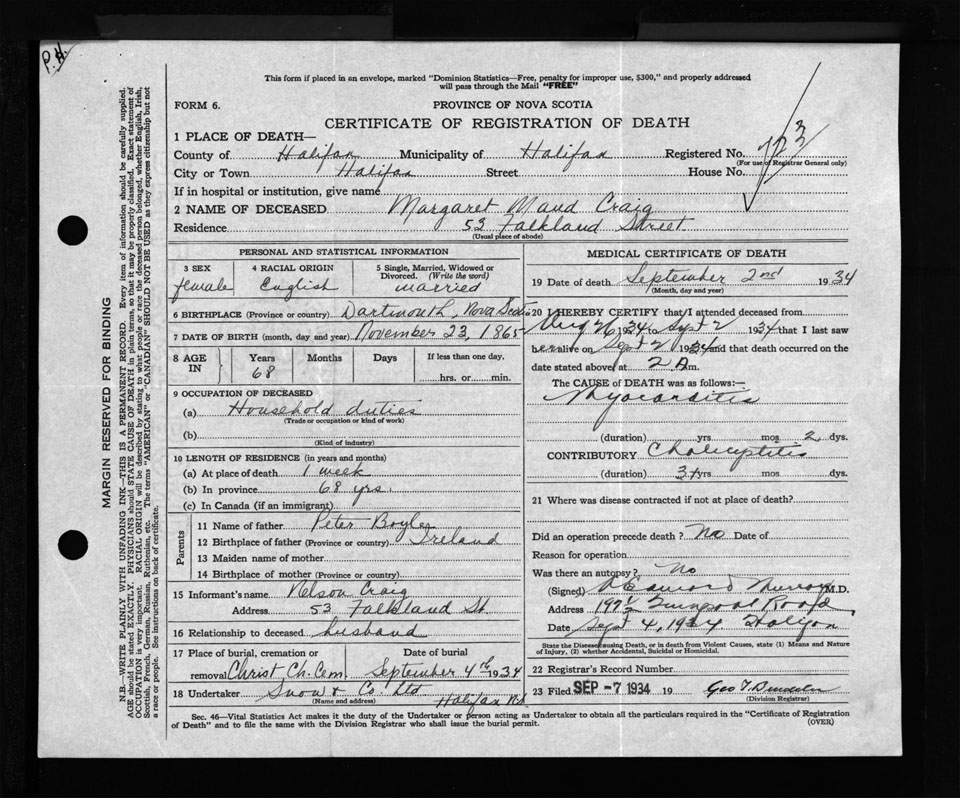 P.H.
This form if placed in an envelope, marked "Dominion Statistics—Free, penalty for improper use, $300," and properly addressed
will pass through the Mail "FREE"
FORM 6.
PROVINCE OF NOVA SCOTIA
CERTIFICATE OF REGISTRATION OF DEATH
1 PLACE OF DEATH—
County of Halifax Municipality of Halifax Registered No. 723
(For use of Registrar General only)
City or Town Halifax Street House No.
If in hospital or institution, give name
2 NAME OF DECEASED Margaret Maud Craig
Residence 53 Falkland Street
(Usual place of abode)
PERSONAL AND STATISTICAL INFORMATION
3 SEX female
4 RACIAL ORIGIN English
5 Single, Married, Widowed or
Divorced. (Write the word)
married
6 BIRTHPLACE (Province or country) Dartmouth, Nova Scotia
7 DATE OF BIRTH (month, day and year) November 23, 1865
8 AGE IN Years 68 Months Days If less than one day.
hrs. or min.
9 OCCUPATION OF DECEASED
(a) Household duties
(Trade or occupation or kind of work)
(b)
(Kind of industry)
10 LENGTH OF RESIDENCE (in years and months)
(a) At place of death 1 week
(b) In province 68 yrs.
(c) In Canada (if an immigrant)
Parents
11 Name of father Peter Boyle
12 Birthplace of father (Province or country) Ireland
13 Maiden name of mother
14 Birthplace of mother (Province or country)
15 Informant's name Nelson Craig
Address 53 Falkland St.
16 Relationship to deceased husband
17 Place of burial, cremation or Date of burial
removal Christ Ch. Cem. September 4th 1934
18 Undertaker Snow & Co. Ltd
(Name and address) Halifax
MEDICAL CERTIFICATE OF DEATH
19 Date of death September 2nd 1934
(Month, day and year)
20 I HEREBY CERTIFY that I attended deceased from
Aug 26 1934 to Sept 2 1934 that I last saw
her alive on Sept 2 1934 and that death occurred on the
date stated above at 2 A.m.
The CAUSE of DEATH was as follows:—
Myocarditis
(duration) yrs. mos. 2 dys.
CONTRIBUTORY
(duration) 3 yrs. mos. dys.
21 Where was disease contracted if not at place of death?
Did an operation precede death? No Date of
Reason for operation
Was there an autopsy? No
(Signed) M.D.
Address Road
Date Sept 4, 1934 Halifax
State the Disease causing Death, or in death from Violent Causes, state (1) Means and Nature
of Injury, (2) whether Accidental, Suicidal or Homicidal.
22 Registrar's Record Number
23 Filed SEP -7 1934 19
(Division Registrar)
Sec. 46—Vital Statistics Act makes it the duty of the Undertaker or person acting as Undertaker to obtain all the particulars required in the "Certificate of Registration
of Death" and to file the same with the Division Registrar who shall issue the burial permit.
(OVER)
MARGIN RESERVED FOR BINDING
N.B.—WRITE PLAINLY WITH UNFADING INK—THIS IS A PERMANENT RECORD. Every item of information should be carefully supplied.
AGE should be stated EXACTLY. PHYSICIANS should STATE CAUSE OF DEATH in plain terms, so that it may be properly classified. Exact statement of
OCCUPATION is very important. RACIAL ORIGIN will be described by stating to what people or race the deceased person belonged, whether English, Irish,
Scottish, French, German, Russian, Ruthenian, etc. The terms "AMERICAN" or "CANADIAN" SHOULD NOT BE USED as they express citizenship but not
a race or people. See instructions on back of certificate.